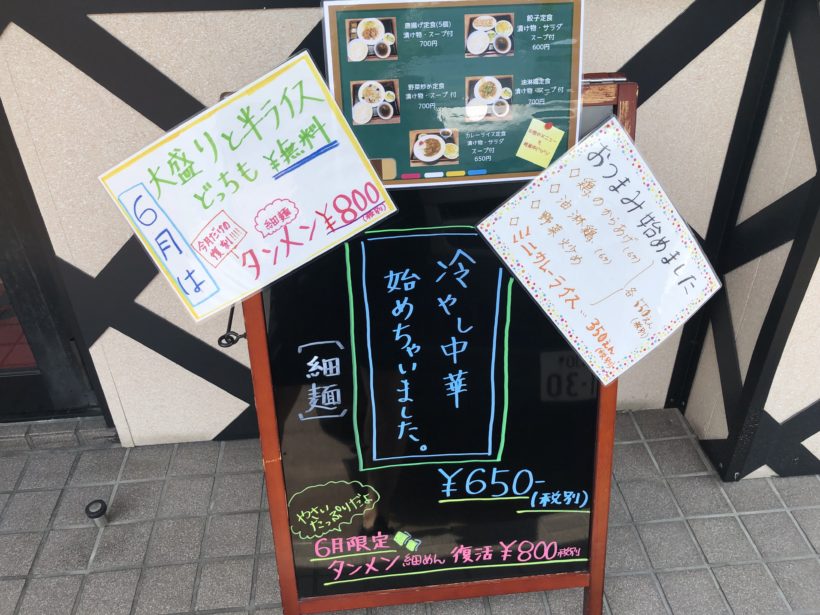 唐揚げ定食(5個)
漬け物・スープ付
700円
餃子定食
漬け物・サラダ
スープ付
600円
野菜炒め定食
漬け物・スープ付
700円
油淋鶏定食
漬け物・サラダ
スープ付
700円
カレーライス定食
漬け物・サラダ
スープ付
650円
6月は
大盛りと半ライス
どっちも¥無料
今月だけの
復刻!!!!
細麺
タンメン¥800
(税別)
おつまみ始めました
◇鶏のからあげ(5ヶ)
◇油淋鶏(5ヶ)
◇野菜炒め
各550えん
(税別)
ミニカレーライス…350えん
(税別)
冷やし中華
始めちゃいました。
[細麺]
¥650-
(税別)
やさい
たっぷりだよ
6月限定
タンメン細めん 復活¥800税別